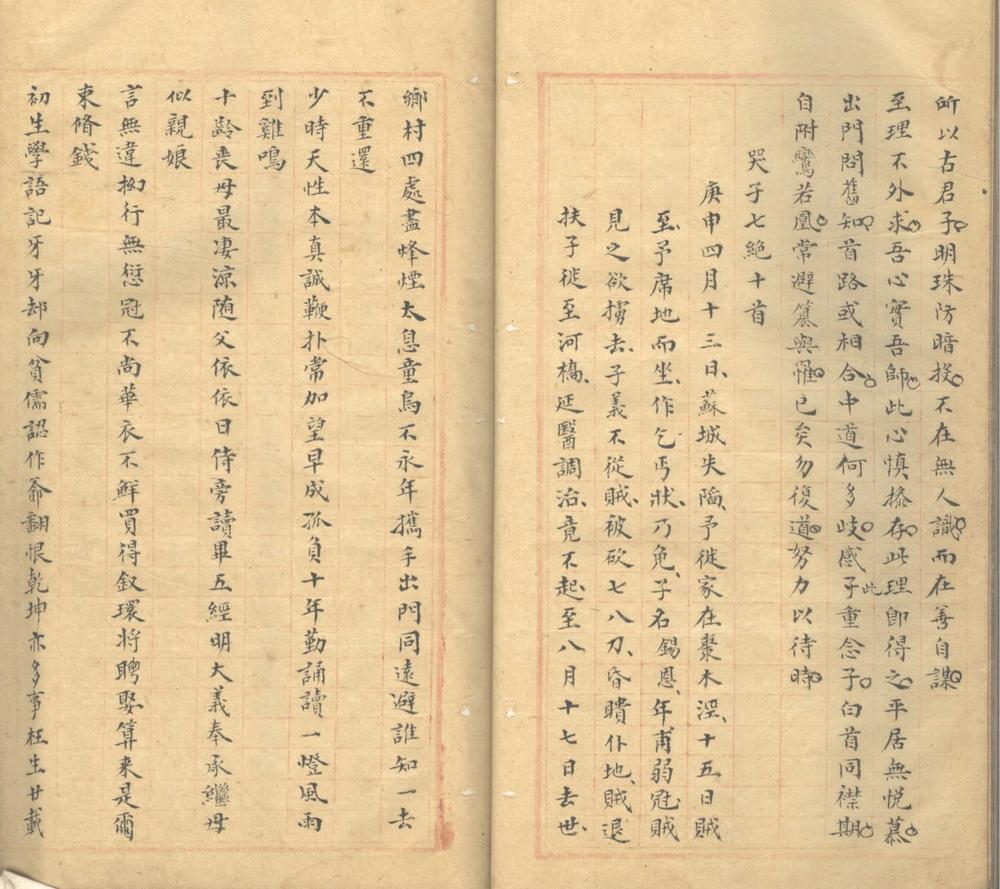 所以古君子明珠防暗投不在無人識而在善自謀
至理不外求吾心實吾師此心慎操存此理即得之平居無悦慕
出門問舊知首路或相合中道何多歧感子此重念子白首同襟期
自附鸞若凰常避篡與羅已矣勿復道努力以待時
哭子七絕十首
庚申四月十三日蘇城失陷予徙家在棗木涇十五日賊
至予席地而坐作乞丐狀乃免子名錫恩年甫弱冠賊
見之欲擄去子義不從賊被砍七八刀昏瞶仆地賊退
扶予徙至河橋延醫調治竟不起至八月十七日去世
鄉村四處盡烽煙太息童烏不永年攜手出門同遠避誰知一去
不重還
少時天性本真誠鞭扑常加望早成孤負十年勤誦讀一燈風雨
到雞鳴
十齡喪母最凄涼随父依依日侍旁讀畢五經明大義奉承繼母
似親娘
言無違拗行無愆冠不尚華衣不鮮買得釵環將聘娶算来是爾
束脩錢
初生學語記牙牙却向貧儒認作爺翻恨乾坤亦多事枉生廿載